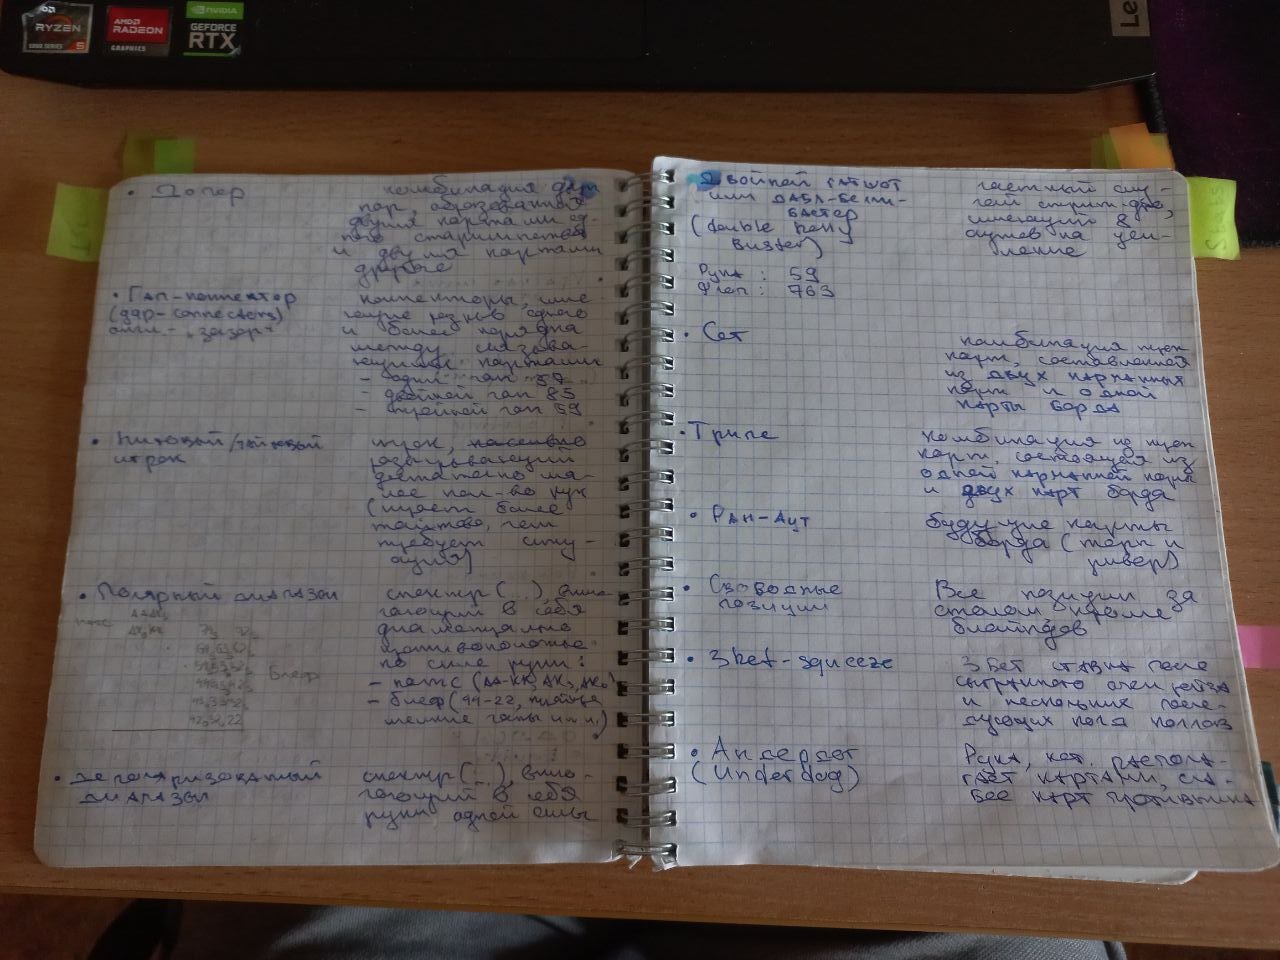 RYZEN
5000 SERIES 5
AMD
RADEON
GRAPHICS
NVIDIA
GEFORCE
RTX
Le
• Допер
комбинация двух
пар, образованная
двумя картами од-
ного старшинства
и двумя картами
другого
• Гап-коннектор
(gap-connectors)
англ - "зазор"
коннекторы, име
ющие разрыв одного
и более порядка
между связыва-
ющими картами
- один гап 57
- двойной гап 85
- тройной гап 59
• Нитовый/тайтовый
игрок
игрок, пассивно
разыгрывающий
достаточно ма-
лое кол-во рук
(играет более
тайтово, чем
требует ситу-
ация)
• Полярный диапазон
спектр (...), вклю
чающий в себя
диаметрально
противоположные
по силе руки:
- натс (AA-KK, AKs, AKo)
- блеф (44-22,
мелкие гапы и т.п.)
Блеф
• Деполяризованный
диапазон
спектр (...), вклю-
чающий в себя
руки одной силы
Двойной гатшот
или дабл-белли-
бастер
(double belly
Buster)
частный слу-
чай стрит-дро,
имеющий 8
аутов на уси-
ление
Рука: 59
Флоп: 763
• Сет
комбинация трех
карт, составленная
из двух карманных
карт и одной
карты борда
• Трипс
комбинация из трех
карт, состоящая из
одной карманной карты
и двух карт борда
• Ран-аут
будущие карты
борда (терн и
ривер)
• Свободные
позиции
Все позиции за
столом, кроме
блайндов
• 3bet-squeeze
3 бет ставка после
сыгранного опен рейза
и нескольких после-
дующих пога коллов
• Андердог
(Underdog)
Рука, кот. распола-
гает картами, сла-
бее карт противника